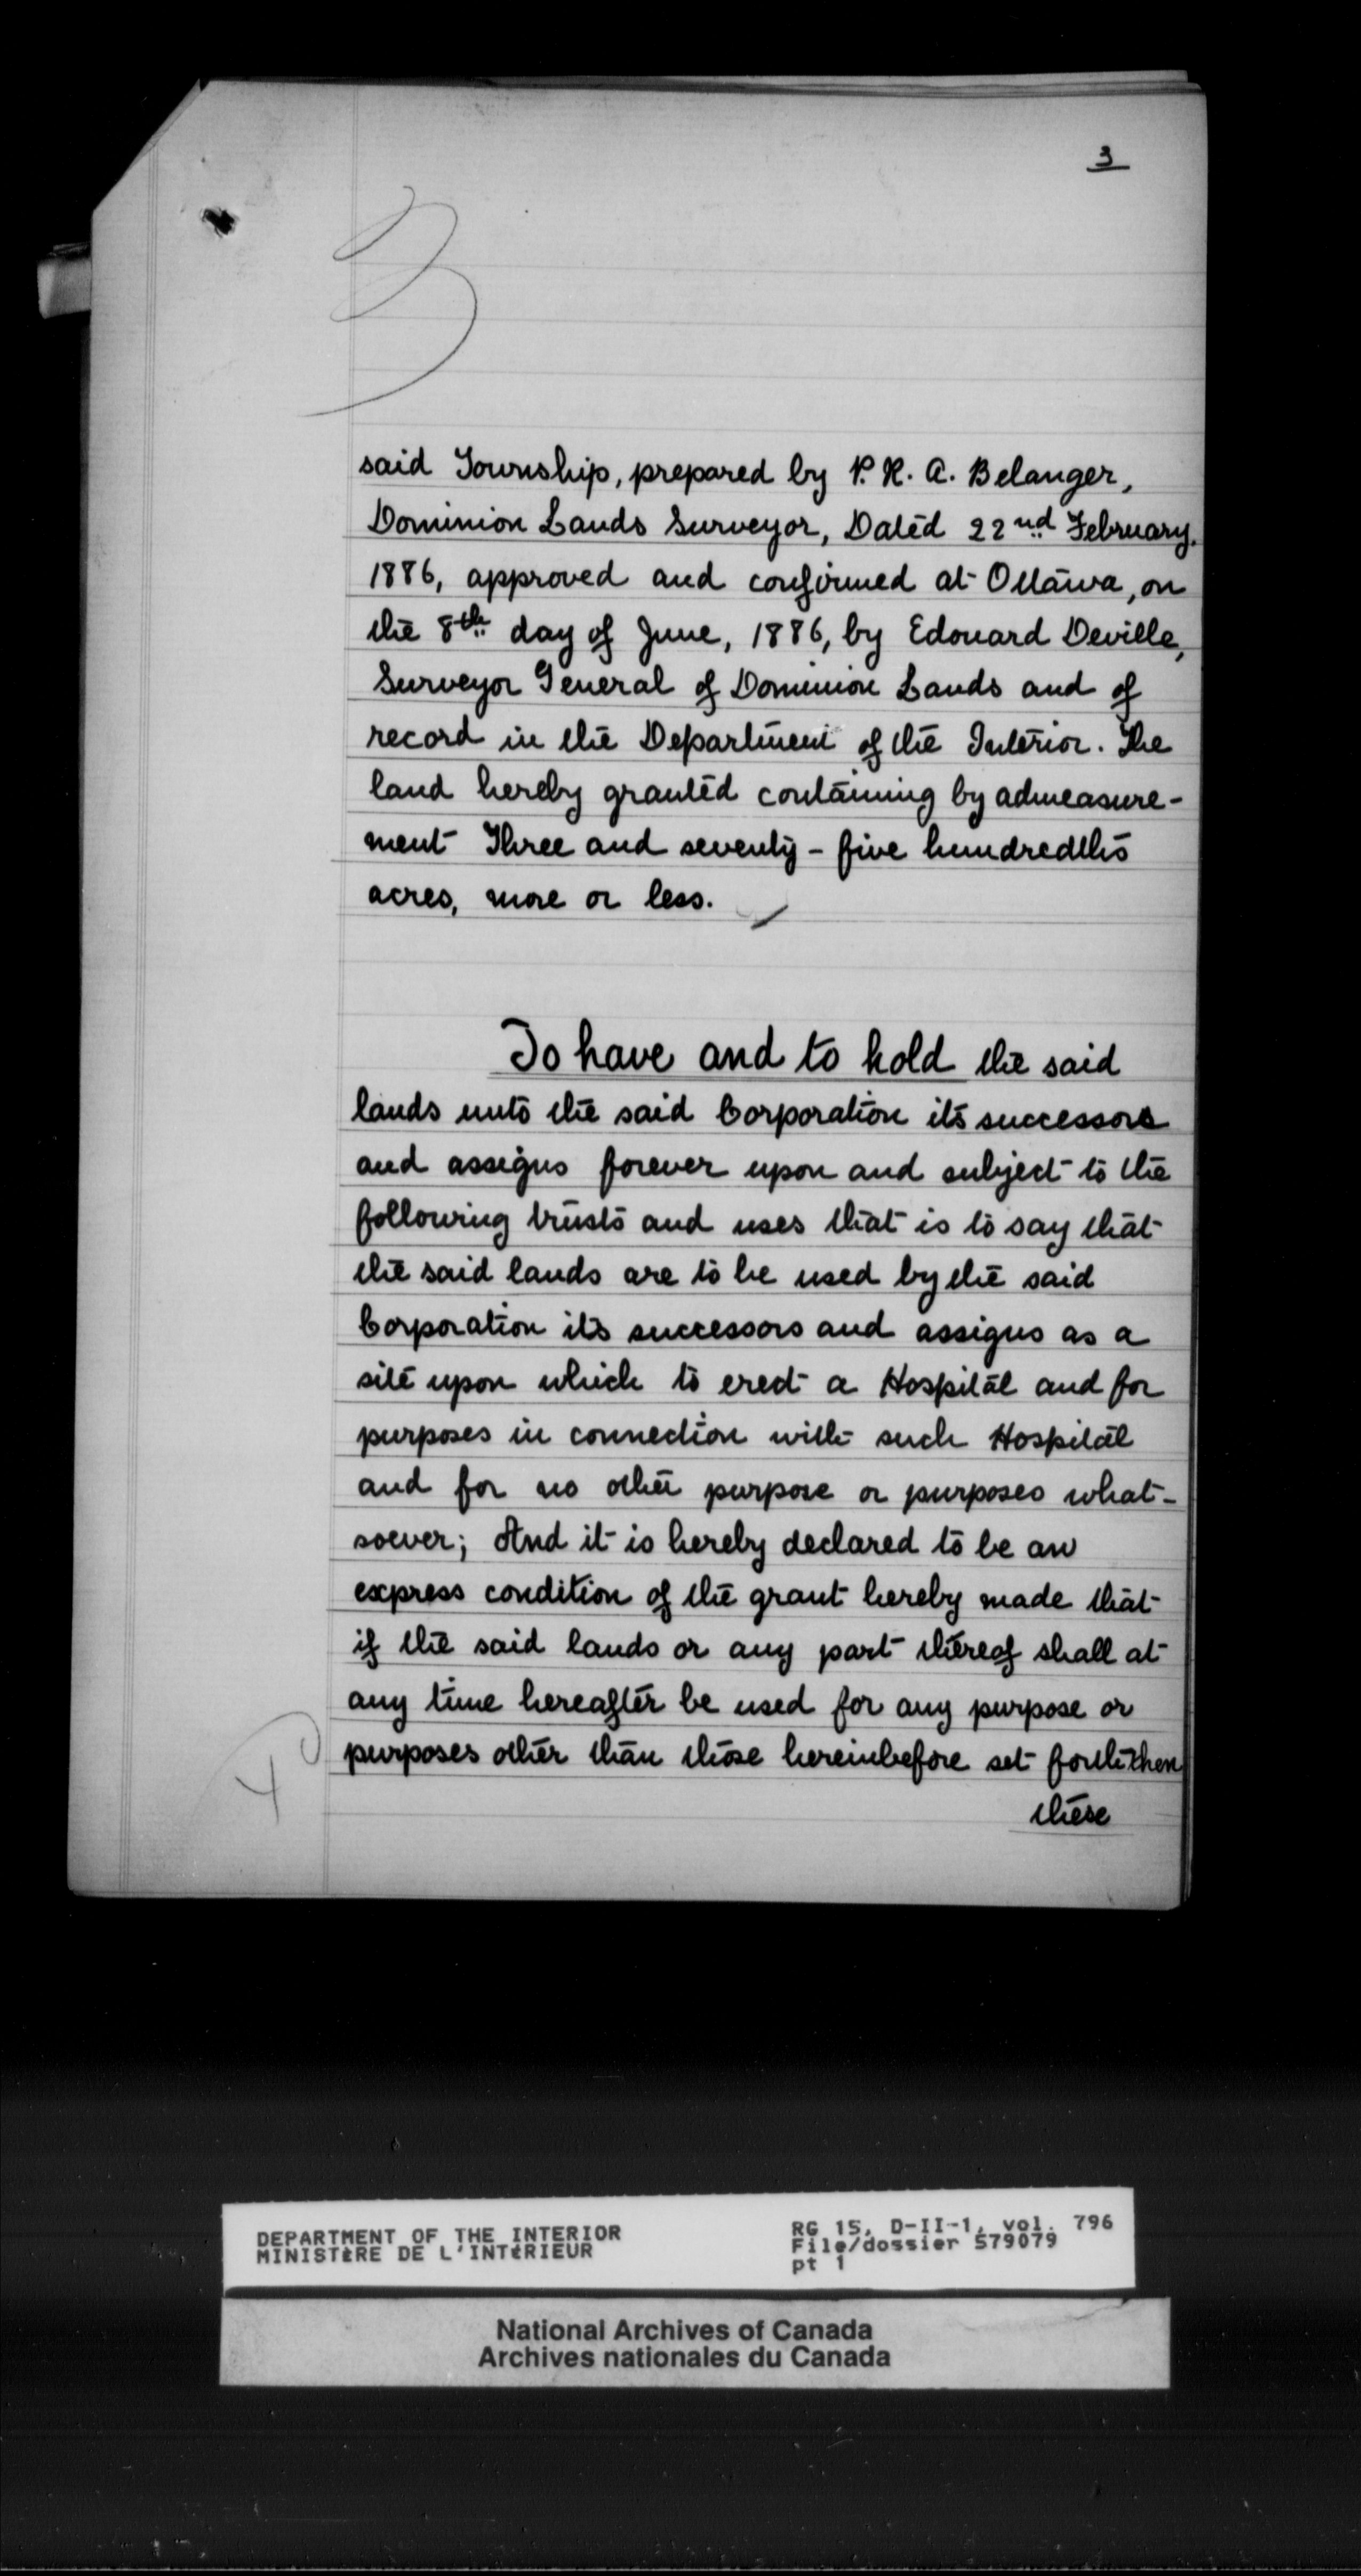 3
3
said Township, prepared by P. R. A. Belanger,
Dominion Lands Surveyor, Dated 22nd February,
1886, approved and confirmed at Ottawa, on
the 8th day of June, 1886, by Edouard Deville,
Surveyor General of Dominion Lands and of
record in the Department of the Interior. The
land hereby granted containing by admeasure-
ment Three and seventy-five hundredths
acres, more or less.
To have and to hold the said
lands unto the said Corporation its successors
and assigns forever upon and subject to the
following trusts and uses that is to say that
the said lands are to be used by the said
Corporation its successors and assigns as a
site upon which to erect a Hospital and for
purposes in connection with such Hospital
and for no other purpose or purposes what-
soever; And it is hereby declared to be an
express condition of the grant hereby made that
if the said lands or any part thereof shall at
any time hereafter be used for any purpose or
purposes other than those hereinbefore set forth then
these
4
DEPARTMENT OF THE INTERIOR
MINISTÈRE DE L'INTÉRIEUR
RG 15, D-II-1, vol. 796
File/dossier 579079
pt 1
National Archives of Canada
Archives nationales du Canada